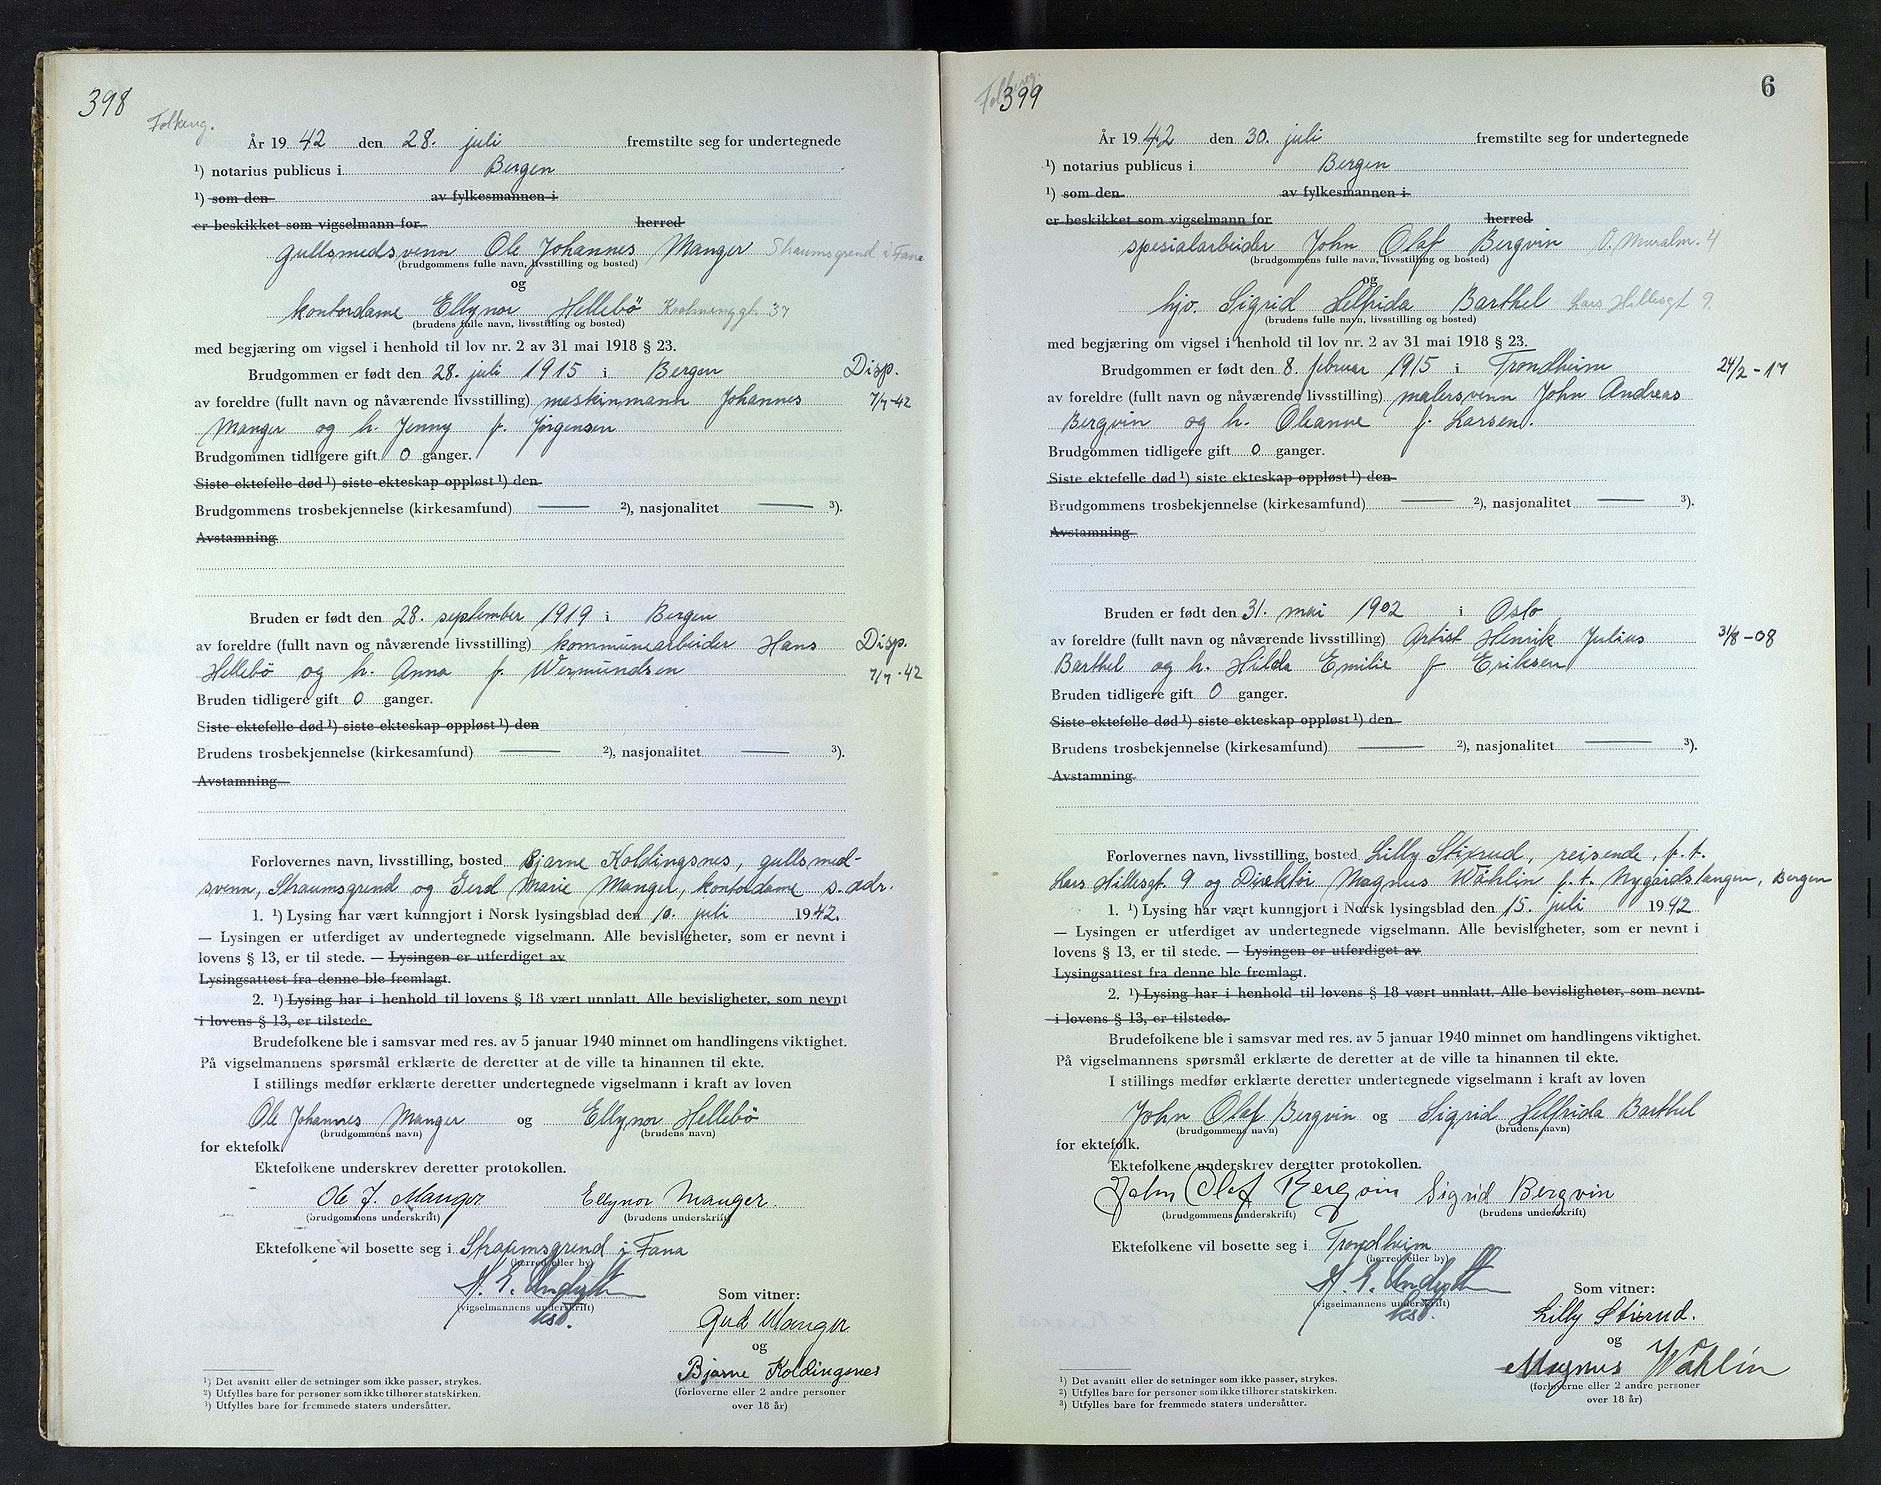 398
Folkereg.
År 1942 den 28. juli fremstilte seg for undertegnede
¹) notarius publicus i Bergen
¹) som den av fylkesmannen i
er beskikket som vigselmann for herred
gullsmedsvenn Ole Johannes Manger Straumsgrend i Fana
(brudgommens fulle navn, livsstilling og bosted)
og
kontordame Ellynor Hellebö 37
(brudens fulle navn, livsstilling og bosted)
med begjæring om vigsel i henhold til lov nr. 2 av 31 mai 1918 § 23.
Brudgommen er født den 28. juli 1915 i Bergen Disp.
av foreldre (fullt navn og nåværende livsstilling) maskinmann Johannes 7/7-42
Manger og h. Jenny f. Jørgensen
Brudgommen tidligere gift 0 ganger.
Siste ektefelle død ¹) siste ekteskap oppløst ¹) den
Brudgommens trosbekjennelse (kirkesamfund) — ²), nasjonalitet — ³).
Avstamning
Bruden er født den 28. september 1919 i Bergen
av foreldre (fullt navn og nåværende livsstilling) kommunearbeider Hans Disp.
Hellebö og h. Anna f. Wermundsen 7/7-42
Bruden tidligere gift 0 ganger.
Siste ektefelle død ¹) siste ekteskap oppløst ¹) den
Brudens trosbekjennelse (kirkesamfund) — ²), nasjonalitet — ³).
Avstamning
Forlovernes navn, livsstilling, bosted Bjarne Koldingsnes, gullsmed-
svenn, Straumsgrend og Gerd Marie Manger, kontordame s. adr.
1. ¹) Lysing har vært kunngjort i Norsk lysingsblad den 10. juli 1942.
— Lysingen er utferdiget av undertegnede vigselmann. Alle bevisligheter, som er nevnt i
lovens § 13, er til stede. — Lysingen er utferdiget av
Lysingsattest fra denne ble fremlagt.
2. ¹) Lysing har i henhold til lovens § 18 vært unnlatt. Alle bevisligheter, som nevnt
i lovens § 13, er tilstede.
Brudefolkene ble i samsvar med res. av 5 januar 1940 minnet om handlingens viktighet.
På vigselmannens spørsmål erklærte de deretter at de ville ta hinannen til ekte.
I stillings medfør erklærte deretter undertegnede vigselmann i kraft av loven
Ole Johannes Manger og Ellynor Hellebö
(brudgommens navn) (brudens navn)
for ektefolk.
Ektefolkene underskrev deretter protokollen.
Ole J. Manger Ellynor Manger.
(brudgommens underskrift) (brudens underskrift)
Ektefolkene vil bosette seg i Straumsgrend i Fana
(herred eller by)
(vigselmannens underskrift)
Som vitner:
Gerd Manger
og
Bjarne Koldingsnes
(forloverne eller 2 andre personer
over 18 år)
¹) Det avsnitt eller de setninger som ikke passer, strykes.
²) Utfylles bare for personer som ikke tilhører statskirken.
³) Utfylles bare for fremmede staters undersåtter.
399
6
Folkereg.
År 1942 den 30. juli fremstilte seg for undertegnede
¹) notarius publicus i Bergen
¹) som den av fylkesmannen i
er beskikket som vigselmann for herred
spesialarbeider John Olaf Bergvin Ø. Muralm. 4
(brudgommens fulle navn, livsstilling og bosted)
og
hjv. Sigrid Helfrida Barthel Lars Hillesgt 9
(brudens fulle navn, livsstilling og bosted)
med begjæring om vigsel i henhold til lov nr. 2 av 31 mai 1918 § 23.
Brudgommen er født den 8. februar 1915 i Trondheim 24/2-17
av foreldre (fullt navn og nåværende livsstilling) malersvenn John Andreas
Bergvin og h. Oleanne f. Larsen.
Brudgommen tidligere gift 0 ganger.
Siste ektefelle død ¹) siste ekteskap oppløst ¹) den
Brudgommens trosbekjennelse (kirkesamfund) — ²), nasjonalitet — ³).
Avstamning
Bruden er født den 31. mai 1902 i Oslo
av foreldre (fullt navn og nåværende livsstilling) Artist Henrik Julius 31/8-08
Barthel og h. Hilda Emilie f Eriksen
Bruden tidligere gift 0 ganger.
Siste ektefelle død ¹) siste ekteskap oppløst ¹) den
Brudens trosbekjennelse (kirkesamfund) — ²), nasjonalitet — ³).
Avstamning
Forlovernes navn, livsstilling, bosted Lilly Stixrud, reisende, p.t.
Lars Hillesgt. 9 og Direktör Magnus Wåhlin p.t. Nygårdstangen, Bergen
1. ¹) Lysing har vært kunngjort i Norsk lysingsblad den 15. juli 1942
— Lysingen er utferdiget av undertegnede vigselmann. Alle bevisligheter, som er nevnt i
lovens § 13, er til stede. — Lysingen er utferdiget av
Lysingsattest fra denne ble fremlagt.
2. ¹) Lysing har i henhold til lovens § 18 vært unnlatt. Alle bevisligheter, som nevnt
i lovens § 13, er tilstede.
Brudefolkene ble i samsvar med res. av 5 januar 1940 minnet om handlingens viktighet.
På vigselmannens spørsmål erklærte de deretter at de ville ta hinannen til ekte.
I stillings medfør erklærte deretter undertegnede vigselmann i kraft av loven
John Olaf Bergvin og Sigrid Helfrida Barthel
(brudgommens navn) (brudens navn)
for ektefolk.
Ektefolkene underskrev deretter protokollen.
John Olaf Bergvin Sigrid Bergvin
(brudgommens underskrift) (brudens underskrift)
Ektefolkene vil bosette seg i Trondheim
(herred eller by)
(vigselmannens underskrift)
Som vitner:
Lilly Stixrud.
og
Magnus Wåhlin
(forloverne eller 2 andre personer
over 18 år)
¹) Det avsnitt eller de setninger som ikke passer, strykes.
²) Utfylles bare for personer som ikke tilhører statskirken.
³) Utfylles bare for fremmede staters undersåtter.